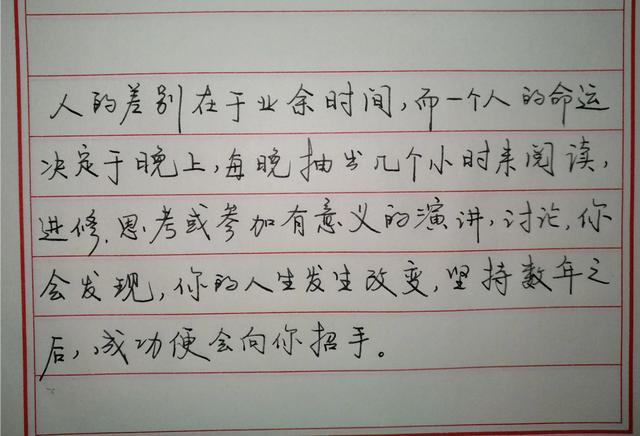 人的差别在于业余时间，而一个人的命运
决定于晚上，每晚抽出几个小时来阅读，
进修、思考或参加有意义的演讲，讨论，你
会发现，你的人生发生改变，坚持数年之
后，成功便会向你招手。